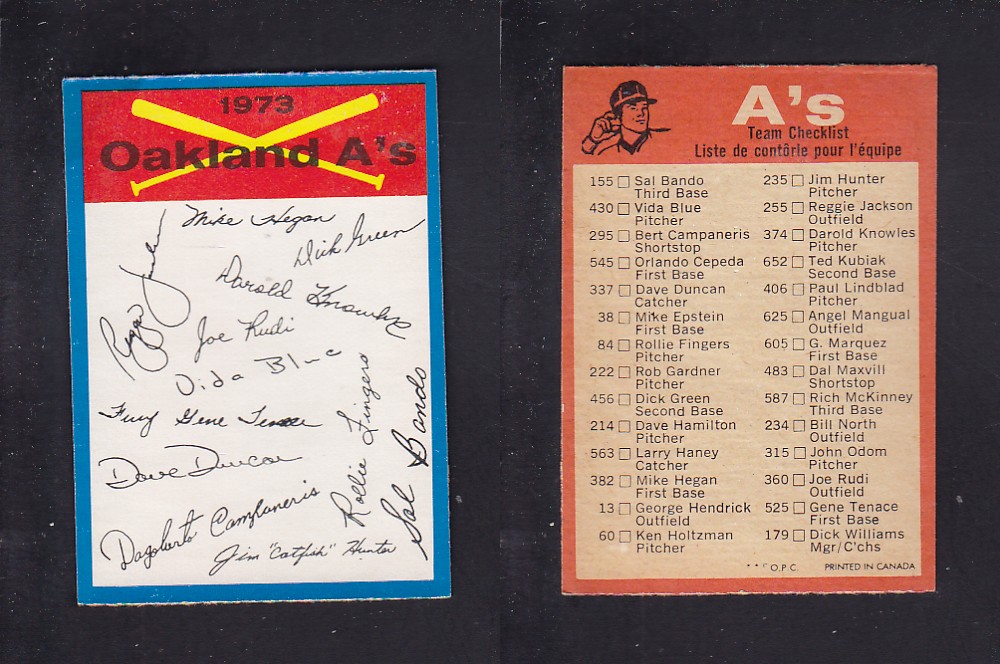 1973
Oakland A's
Mike Hegan
Dick Green
Reggie Jackson
Darold Knowles
Joe Rudi
Vida Blue
Fury Gene Tenace
Dave Duncan
Rollie Fingers
Sal Bando
Dagoberto Campaneris
Jim "Catfish" Hunter
A's
Team Checklist
Liste de contôrle pour l'équipe
155 Sal Bando
Third Base
430 Vida Blue
Pitcher
295 Bert Campaneris
Shortstop
545 Orlando Cepeda
First Base
337 Dave Duncan
Catcher
38 Mike Epstein
First Base
84 Rollie Fingers
Pitcher
222 Rob Gardner
Pitcher
456 Dick Green
Second Base
214 Dave Hamilton
Pitcher
563 Larry Haney
Catcher
382 Mike Hegan
First Base
13 George Hendrick
Outfield
60 Ken Holtzman
Pitcher
235 Jim Hunter
Pitcher
255 Reggie Jackson
Outfield
374 Darold Knowles
Pitcher
652 Ted Kubiak
Second Base
406 Paul Lindblad
Pitcher
625 Angel Mangual
Outfield
605 G. Marquez
First Base
483 Dal Maxvill
Shortstop
587 Rich McKinney
Third Base
234 Bill North
Outfield
315 John Odom
Pitcher
360 Joe Rudi
Outfield
525 Gene Tenace
First Base
179 Dick Williams
Mgr/C'chs
O.P.C. PRINTED IN CANADA